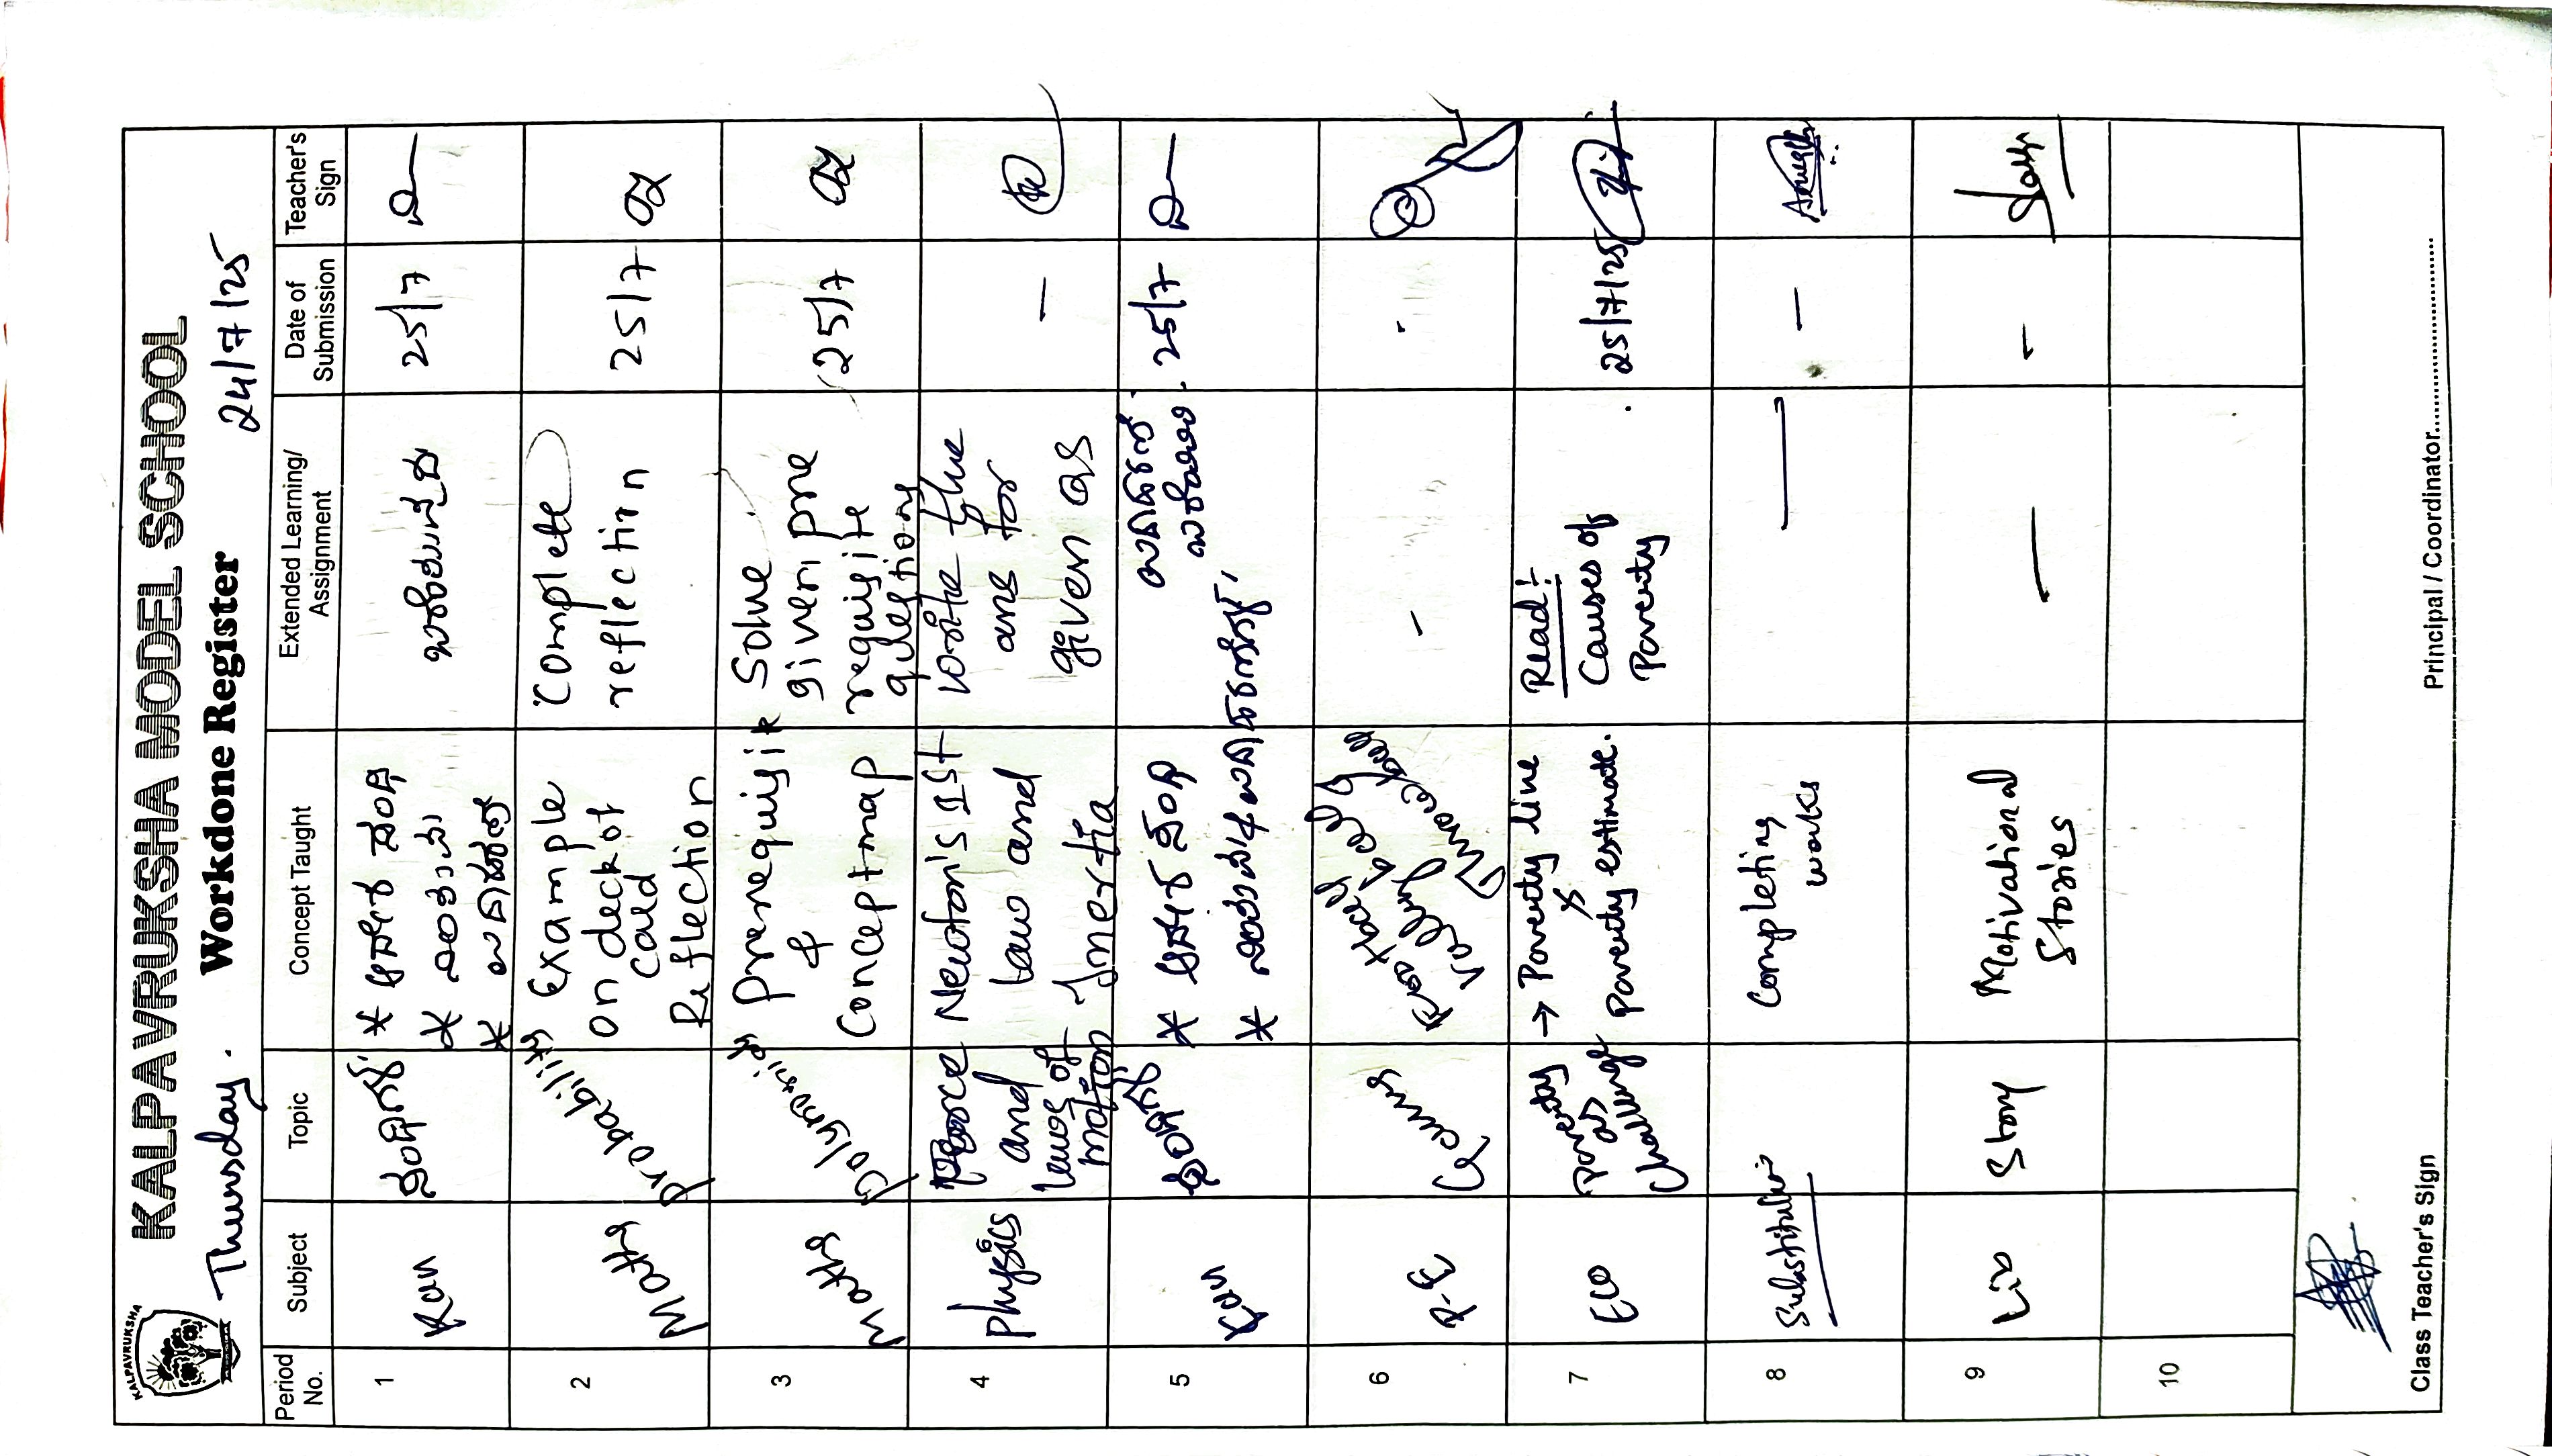 KALPAVRUKSHA
KALPAVRUKSHA MODEL SCHOOL
Thursday. Workdone Register 24/7/25
Period No. Subject Topic Concept Taught Extended Learning/ Assignment Date of Submission Teacher's Sign
1 Kan ಸಂಧಿಗಳು * ಆಗಮ ಸಂಧಿ 25/7
*
*
2 Maths Probability Example
on deck of
card
Reflection
Complete
reflection
25/7
3 Maths Polynomials prerequisite
&
Conceptmap
Solve
given pre
requisite
questions
25/7
4 Physics Force
and
laws of
motion
Newton's Ist
law and
Inertia
write the
ans for
given Qs
—
5 Kan * ಆಗಮ ಸಂಧಿ
*
25/7
6 P.E Games
Volley ball
Throw ball
-
7 ECO Poverty
as
Challenge
→ Poverty line
&
Poverty estimate.
Read:-
Causes of
Poverty
25/7/25
8 Substitution Completing
works
—
—
9 Lib Story Motivational
Stories
—
-
10
Class Teacher's Sign Principal / Coordinator